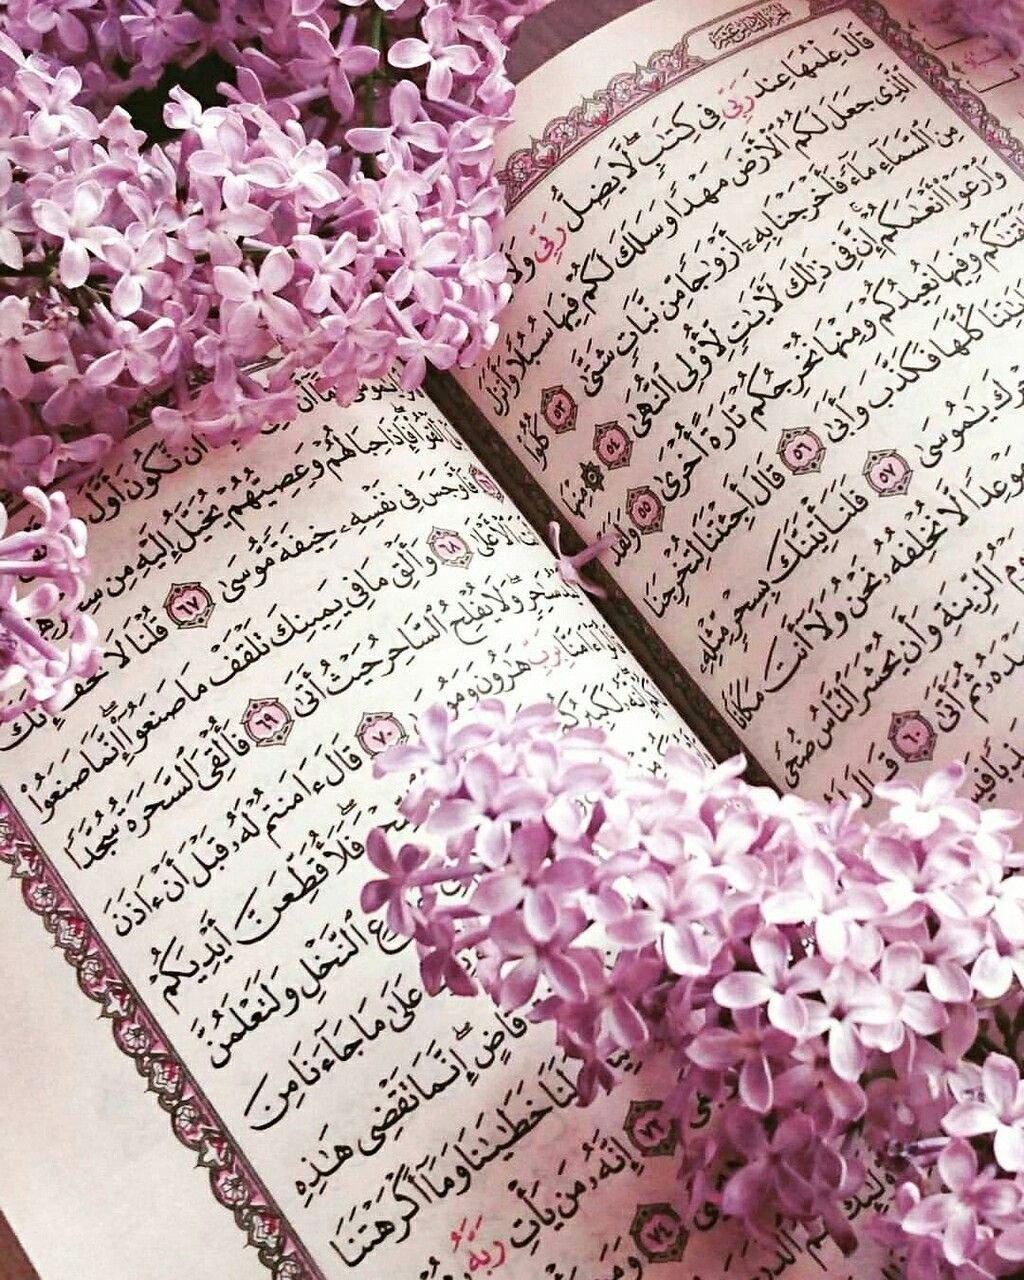 الجزء السادس عشر
قَالَ عِلْمُهَا عِندَ رَبِّي فِي كِتَٰبٍ لَّا يَضِلُّ رَبِّي وَلَا
ٱلَّذِي جَعَلَ لَكُمُ ٱلْأَرْضَ مَهْدًا وَسَلَكَ لَكُمْ فِيهَا سُبُلًا وَأَنزَلَ
مِنَ ٱلسَّمَآءِ مَآءً فَأَخْرَجْنَا بِهِۦٓ أَزْوَٰجًا مِّن نَّبَاتٍ شَتَّىٰ ٥٣ كُلُوا۟
وَٱرْعَوْا۟ أَنْعَٰمَكُمْ إِنَّ فِي ذَٰلِكَ لَأٓيَٰتٍ لِّأُو۟لِي ٱلنُّهَىٰ ٥٤ ۞ مِنْهَا
وَفِيهَا نُعِيدُكُمْ وَمِنْهَا نُخْرِجُكُمْ تَارَةً أُخْرَىٰ ٥٥ وَلَقَدْ
كُلَّهَا فَكَذَّبَ وَأَبَىٰ ٥٦ قَالَ أَجِئْتَنَا لِتُخْرِجَنَا
يَٰمُوسَىٰ ٥٧ فَلَنَأْتِيَنَّكَ بِسِحْرٍ مِّثْلِهِۦ
مَوْعِدًا لَّا نُخْلِفُهُۥ نَحْنُ وَلَآ أَنتَ مَكَانًا
ٱلزِّينَةِ وَأَن يُحْشَرَ ٱلنَّاسُ ضُحًى
ثُمَّ أَتَىٰ ٦٠ قَالَ
أَن نَّكُونَ أَوَّلَ
فَإِذَا حِبَالُهُمْ وَعِصِيُّهُمْ يُخَيَّلُ إِلَيْهِ مِن
فَأَوْجَسَ فِي نَفْسِهِۦ خِيفَةً مُّوسَىٰ ٦٧ قُلْنَا لَا تَخَفْ إِنَّكَ
ٱلْأَعْلَىٰ ٦٨ وَأَلْقِ مَا فِي يَمِينِكَ تَلْقَفْ مَا صَنَعُوٓا۟ إِنَّمَا صَنَعُوا۟
سَٰحِرٍ وَلَا يُفْلِحُ ٱلسَّاحِرُ حَيْثُ أَتَىٰ ٦٩ فَأُلْقِيَ ٱلسَّحَرَةُ سُجَّدًا
ءَامَنَّا بِرَبِّ هَٰرُونَ وَمُوسَىٰ ٧٠ قَالَ ءَامَنتُمْ لَهُۥ قَبْلَ أَنْ ءَاذَنَ
لَكَبِيرُكُمُ فَلَأُقَطِّعَنَّ أَيْدِيَكُمْ
ٱلنَّخْلِ وَلَتَعْلَمُنَّ
عَلَىٰ مَا جَآءَنَا مِنَ
قَاضٍ إِنَّمَا تَقْضِي هَٰذِهِ
لَنَا خَطَٰيَٰنَا وَمَآ أَكْرَهْتَنَا
٧٣ إِنَّهُۥ مَن يَأْتِ رَبَّهُۥ
٧٤ وَمَن